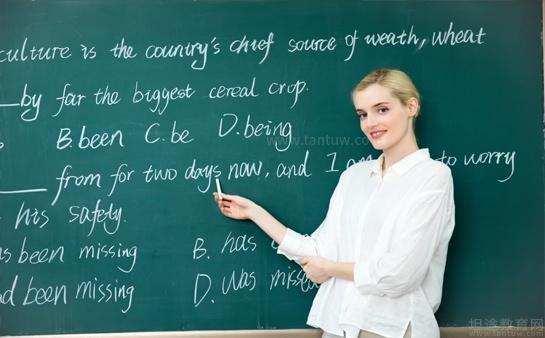 culture is the country's chief source of weath, wheat
___by far the biggest cereal crop.
B.been C.be D.being
www.tantuw.com
____ from for two days now, and I to worry
his safety.
as been missing B. has
ad been missing D. was misse
坦途教育网
www.tantuw.com